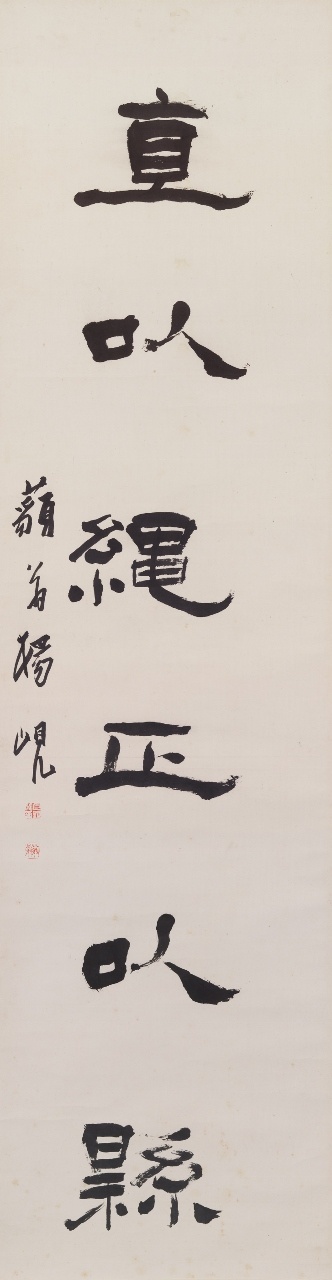 直以繩正以縣
藐翁楊峴